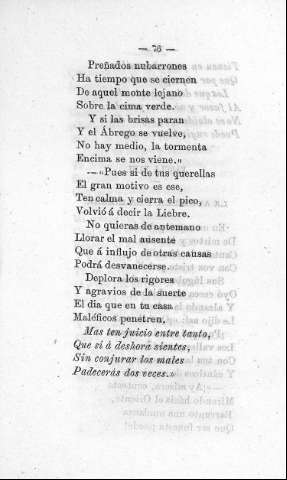 — 76 —
Preñados nubarrones
Ha tiempo que se ciernen
De aquel monte lejano
Sobre la cima verde.
Y si las brisas paran
Y el Ábrego se vuelve,
No hay medio, la tormenta
Encima se nos viene.»
—«Pues si de tus querellas
El gran motivo es ese,
Ten calma y cierra el pico,
Volvió á decir la Liebre.
No quieras de antemano
Llorar el mal ausente
Que á influjo de otras causas
Podrá desvanecerse.
Deplora los rigores
Y agravios de la suerte
El dia que en tu casa
Maléficos penetren.
Mas ten juicio entre tanto,
Que si á deshora sientes,
Sin conjurar los males
Padecerás dos veces.»